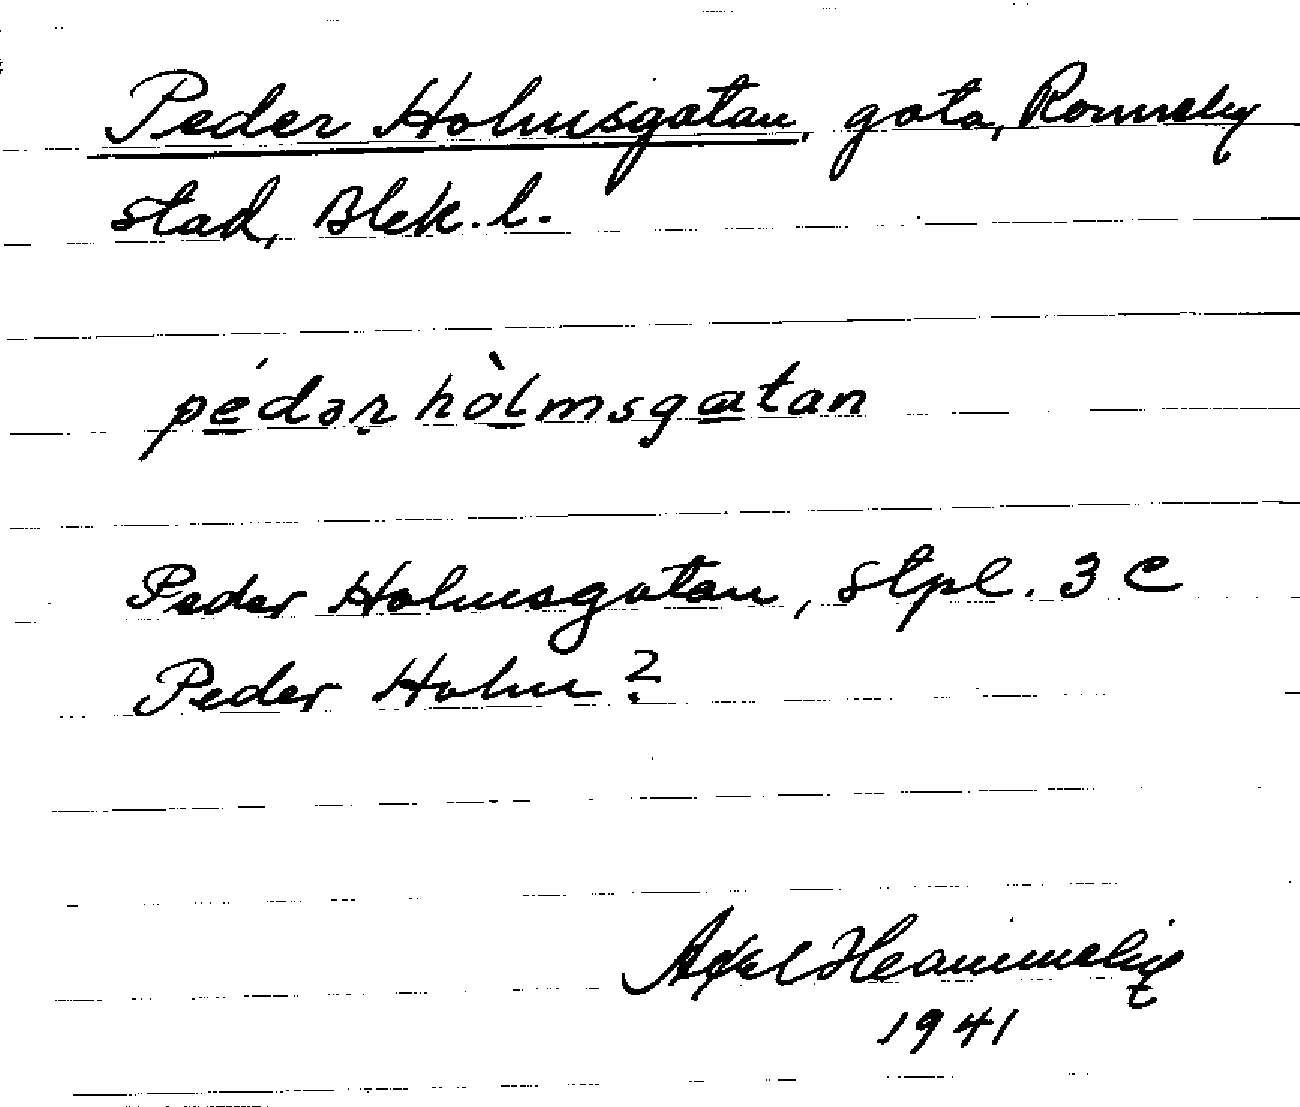 Peder Holmsgatan, gata, Ronneby
stad, Blek. l.
pédər hòlmsgatan
Peder Holmsgatan, stpl. 3 C
Peder Holm?
Axel
1941